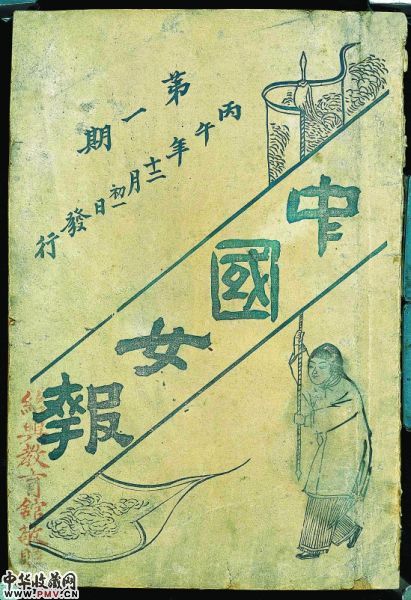 中國女報
第一期
丙午年十二月初一日發行
紹興教育館
中华收藏网
www.PMV.cn